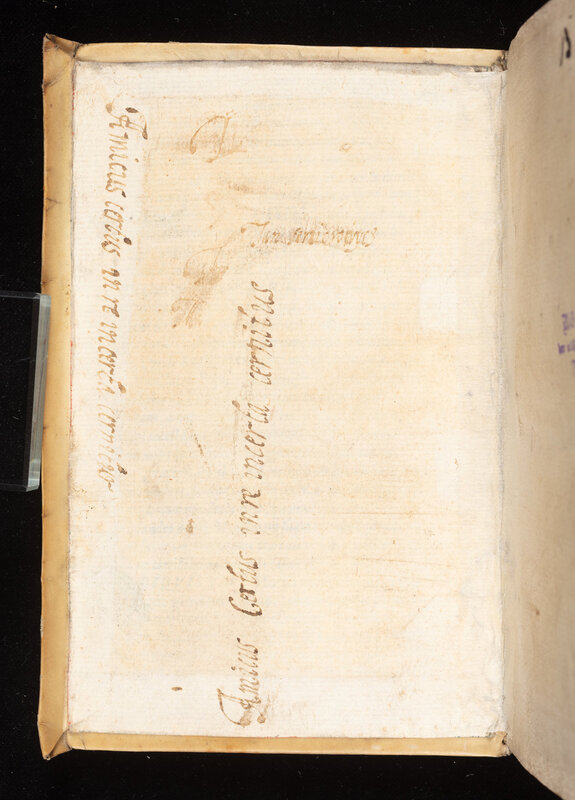 Amicus certus in re incerta cernitur
Amicus Certus in re incerta cernitus